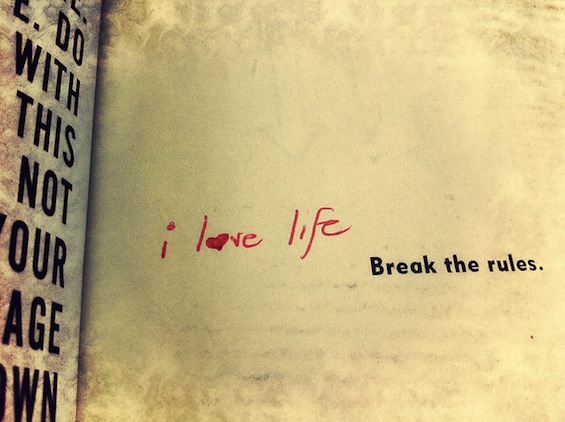 DO
WITH
THIS
NOT
OUR
AGE
WN
i love life
Break the rules.